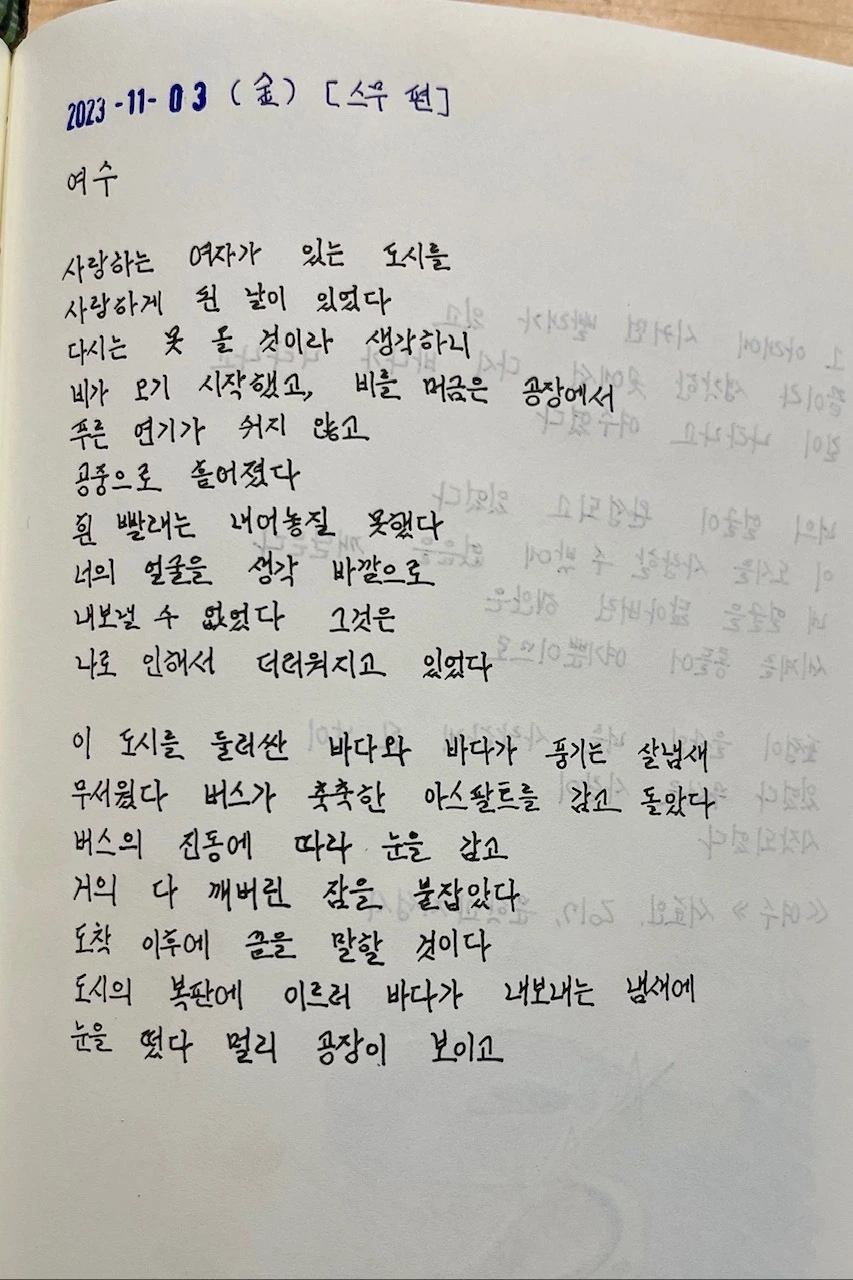 2023-11-03 (金) [스무 편]
여수
사랑하는 여자가 있는 도시를
사랑하게 된 날이 있었다
다시는 못 올 것이라 생각하니
비가 오기 시작했고, 비를 머금은 공장에서
푸른 연기가 쉬지 않고
공중으로 흩어졌다
흰 빨래는 내어놓질 못했다
너의 얼굴을 생각 바깥으로
내보낼 수 없었다 그것은
나로 인해서 더러워지고 있었다
이 도시를 둘러싼 바다와 바다가 풍기는 살냄새
무서웠다 버스가 축축한 아스팔트를 감고 돌았다
버스의 진동에 따라 눈을 감고
거의 다 깨버린 잠을 붙잡았다
도착 이후에 끝을 말할 것이다
도시의 복판에 이르러 바다가 내보내는 냄새에
눈을 떴다 멀리 공장이 보이고